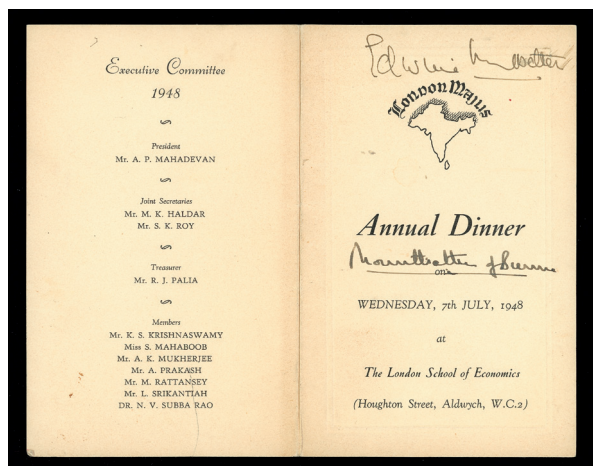 Executive Committee
1948
President
Mr. A. P. MAHADEVAN
Joint Secretaries
Mr. M. K. HALDAR
Mr. S. K. ROY
Treasurer
Mr. R. J. PALIA
Members
Mr. K. S. KRISHNASWAMY
Miss S. MAHABOOB
Mr. A. K. MUKHERJEE
Mr. A. PRAKASH
Mr. M. RATTANSEY
Mr. L. SRIKANTIAH
DR. N. V. SUBBA RAO
Edwina Mountbatten
London Majlis
Annual Dinner
Mountbatten of Burma
on
WEDNESDAY, 7th JULY, 1948
at
The London School of Economics
(Houghton Street, Aldwych, W.C.2)